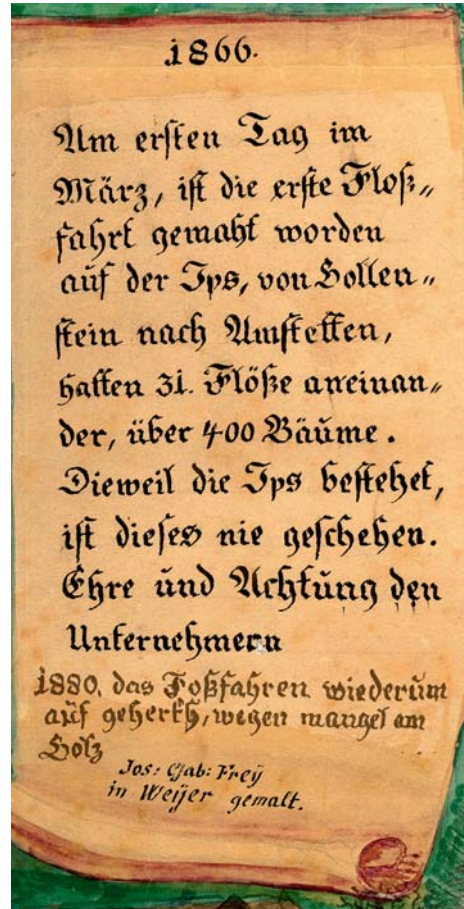 1866.
Am ersten Tag im
März, ist die erste Floß„
fahrt gemaht worden
auf der Ips, von Hollen„
stein nach Amstetten,
hatten 31. Flöße aneinan„
der, über 400 Bäume.
Dieweil die Ips bestehet,
ist dieses nie geschehen.
Ehre und Achtung den
Unternehmern
1880, das Foßfahren wiederum
auf geherth, wegen mangel am
Holz
Jos: Gab: Freÿ
in Weÿer gemalt.